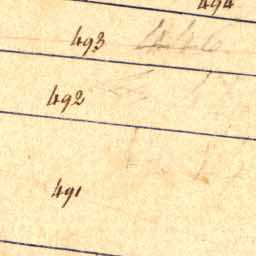 494
493 446
492
491